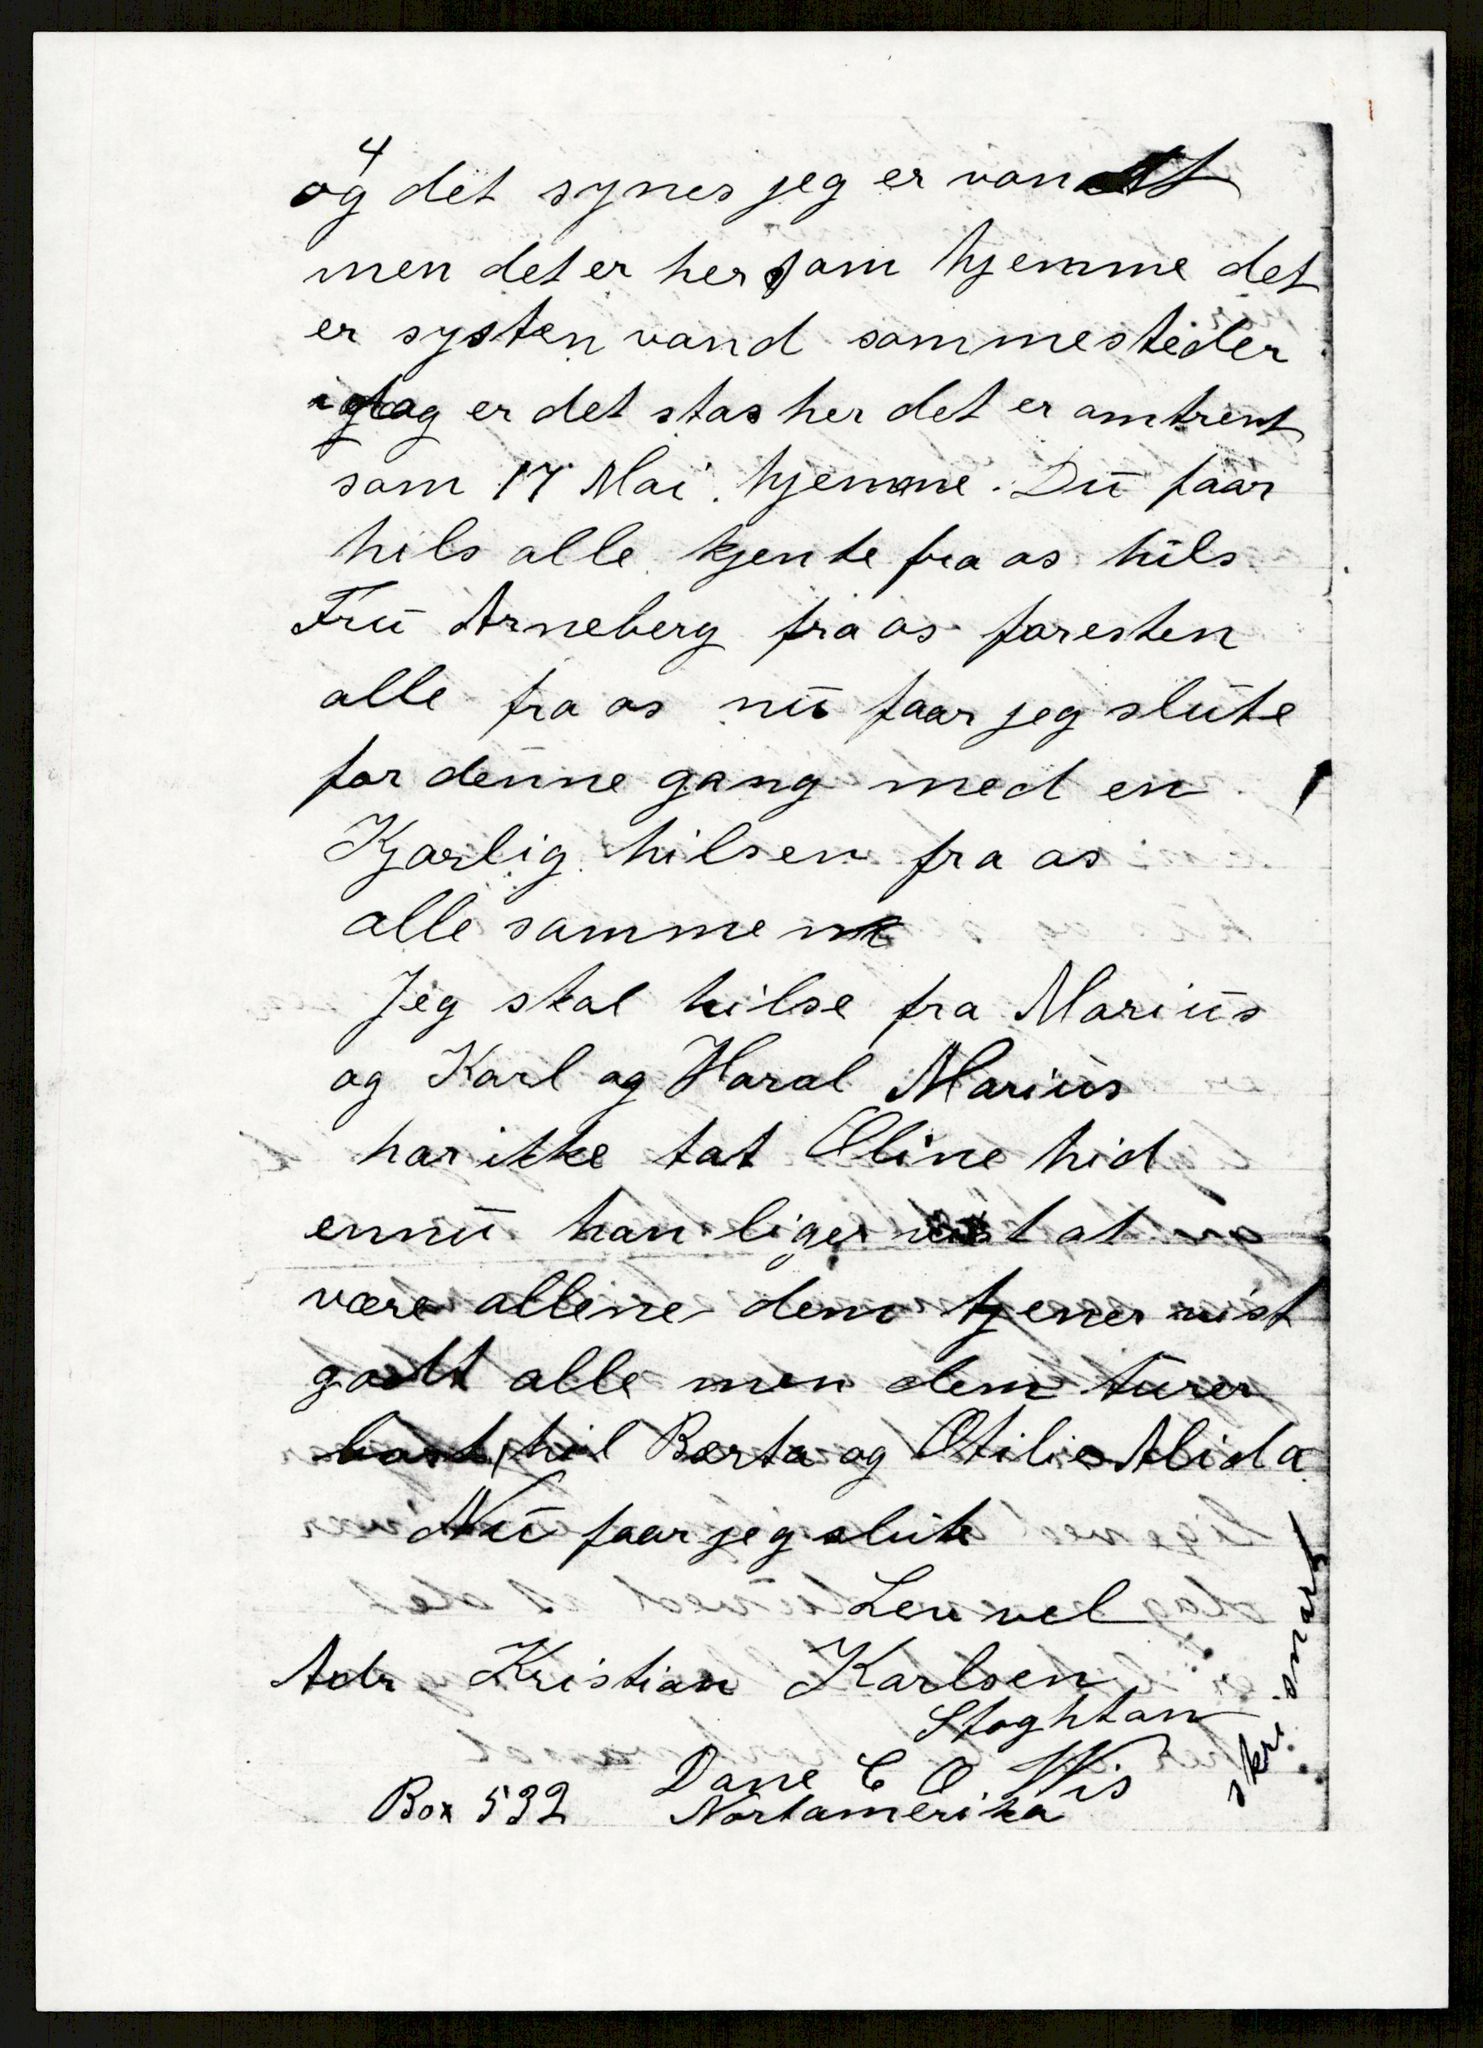 4
og det synes jeg er vondt
men det er her som hjemme det
er systen vand sommesteder
idag er det stas her det er omtrent
som 17 Mai hjemme. Dū faar
hils alle kjente fra os hils
Frū Arneberg fra os foresten
alle fra os nū faar jeg slūte
for denne gang med en
Kjærlig hilsen fra os
alle sammen
Jeg skal hilse fra Mariūs
og Karl og Haral Mariūs
har ikke tat Oline hid
ennū han liger vist at
være allene dem tjener vist
godt alle men dem tūrer
bort hil Berta og Otilie Alida
Nū faar jeg slūte
Lev vel
Adr Kristian Karlsen
Stoghton
Dane C O. Wis
Box 532 Nortamerika
skri snart